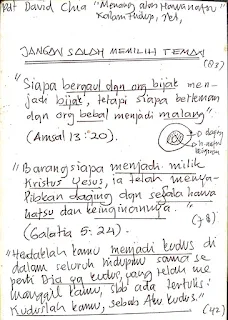 Pdt David Chua "Menang atas Hawa nafsu"
Kalam Hidup,
JANGAN SALAH MEMILIH TEMAN
"Siapa bergaul dan org bijak men-
jadi bijak, tetapi siapa berteman
dan org bebal menjadi malang"
(Amsal 13:20).
daging
"Barangsiapa menjadi milik
Kristus Yesus, ia telah menya-
libkan daging dan segala hawa
nafsu dan keinginannya."
(Galatia 5:24).
"Hendaklah kamu menjadi kudus di
dalam seluruh hidupmu sama se
perti Dia yg kudus, yang telah me
manggil kamu, sbb ada tertulis:
Kuduslah kamu, sebab Aku kudus."